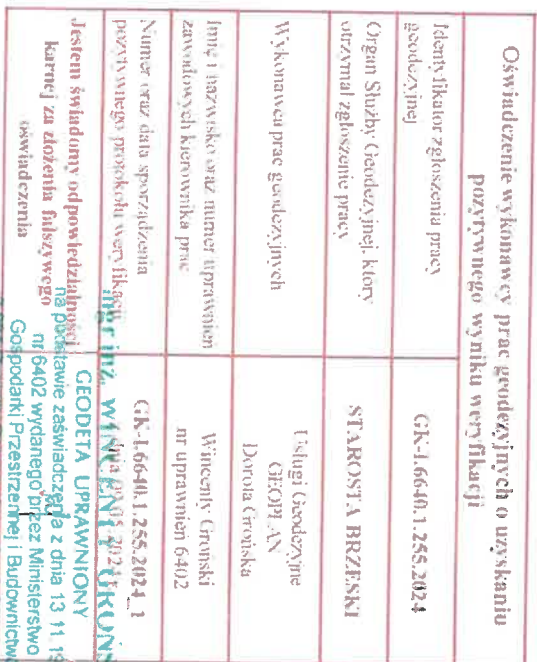 Oświadczenie wykonawcy prac geodezyjnych o uzyskaniu
pozytywnego wyniku weryfikacji
Identyfikator zgłoszenia pracy
geodezyjnej
GK-I.6640.1.255.2024
Organ Służby Geodezyjnej, który
otrzymał zgłoszenie pracy
STAROSTA BRZESKI
Wykonawca prac geodezyjnych
Usługi Geodezyjne
GEOPLAN
Dorota Grońska
Imię i nazwisko oraz numer uprawnień
zawodowych kierownika prac
Wincenty Groński
nr uprawnień 6402
Numer oraz data sporządzenia
pozytywnego protokołu weryfikacji
GK-I.6640.1.255.2024_1
Jestem świadomy odpowiedzialności
karnej za złożenia fałszywego
oświadczenia
mgr inż.
GEODETA UPRAWNIONY
na podstawie zaświadczenia z dnia 13 11
nr 6402 wydanego przez Ministerstwo
Gospodarki Przestrzennej i Budownictwa